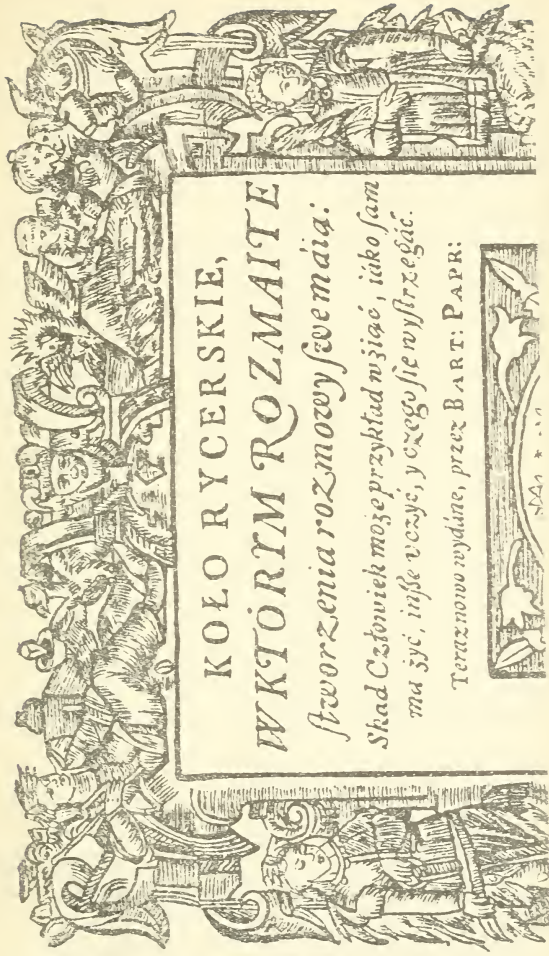 KOŁO RYCERSKIE,
W KTÓRYM ROZMAITE
ſtworzenia rozmowy ſwe máią:
Skąd Człowiek może przykład wźiąć, iáko ſam
ma żyć, inſze vczyć, y czego ſie wyſtrzegáć.
Teraz nowo wydáne, przez BART: PAPR: